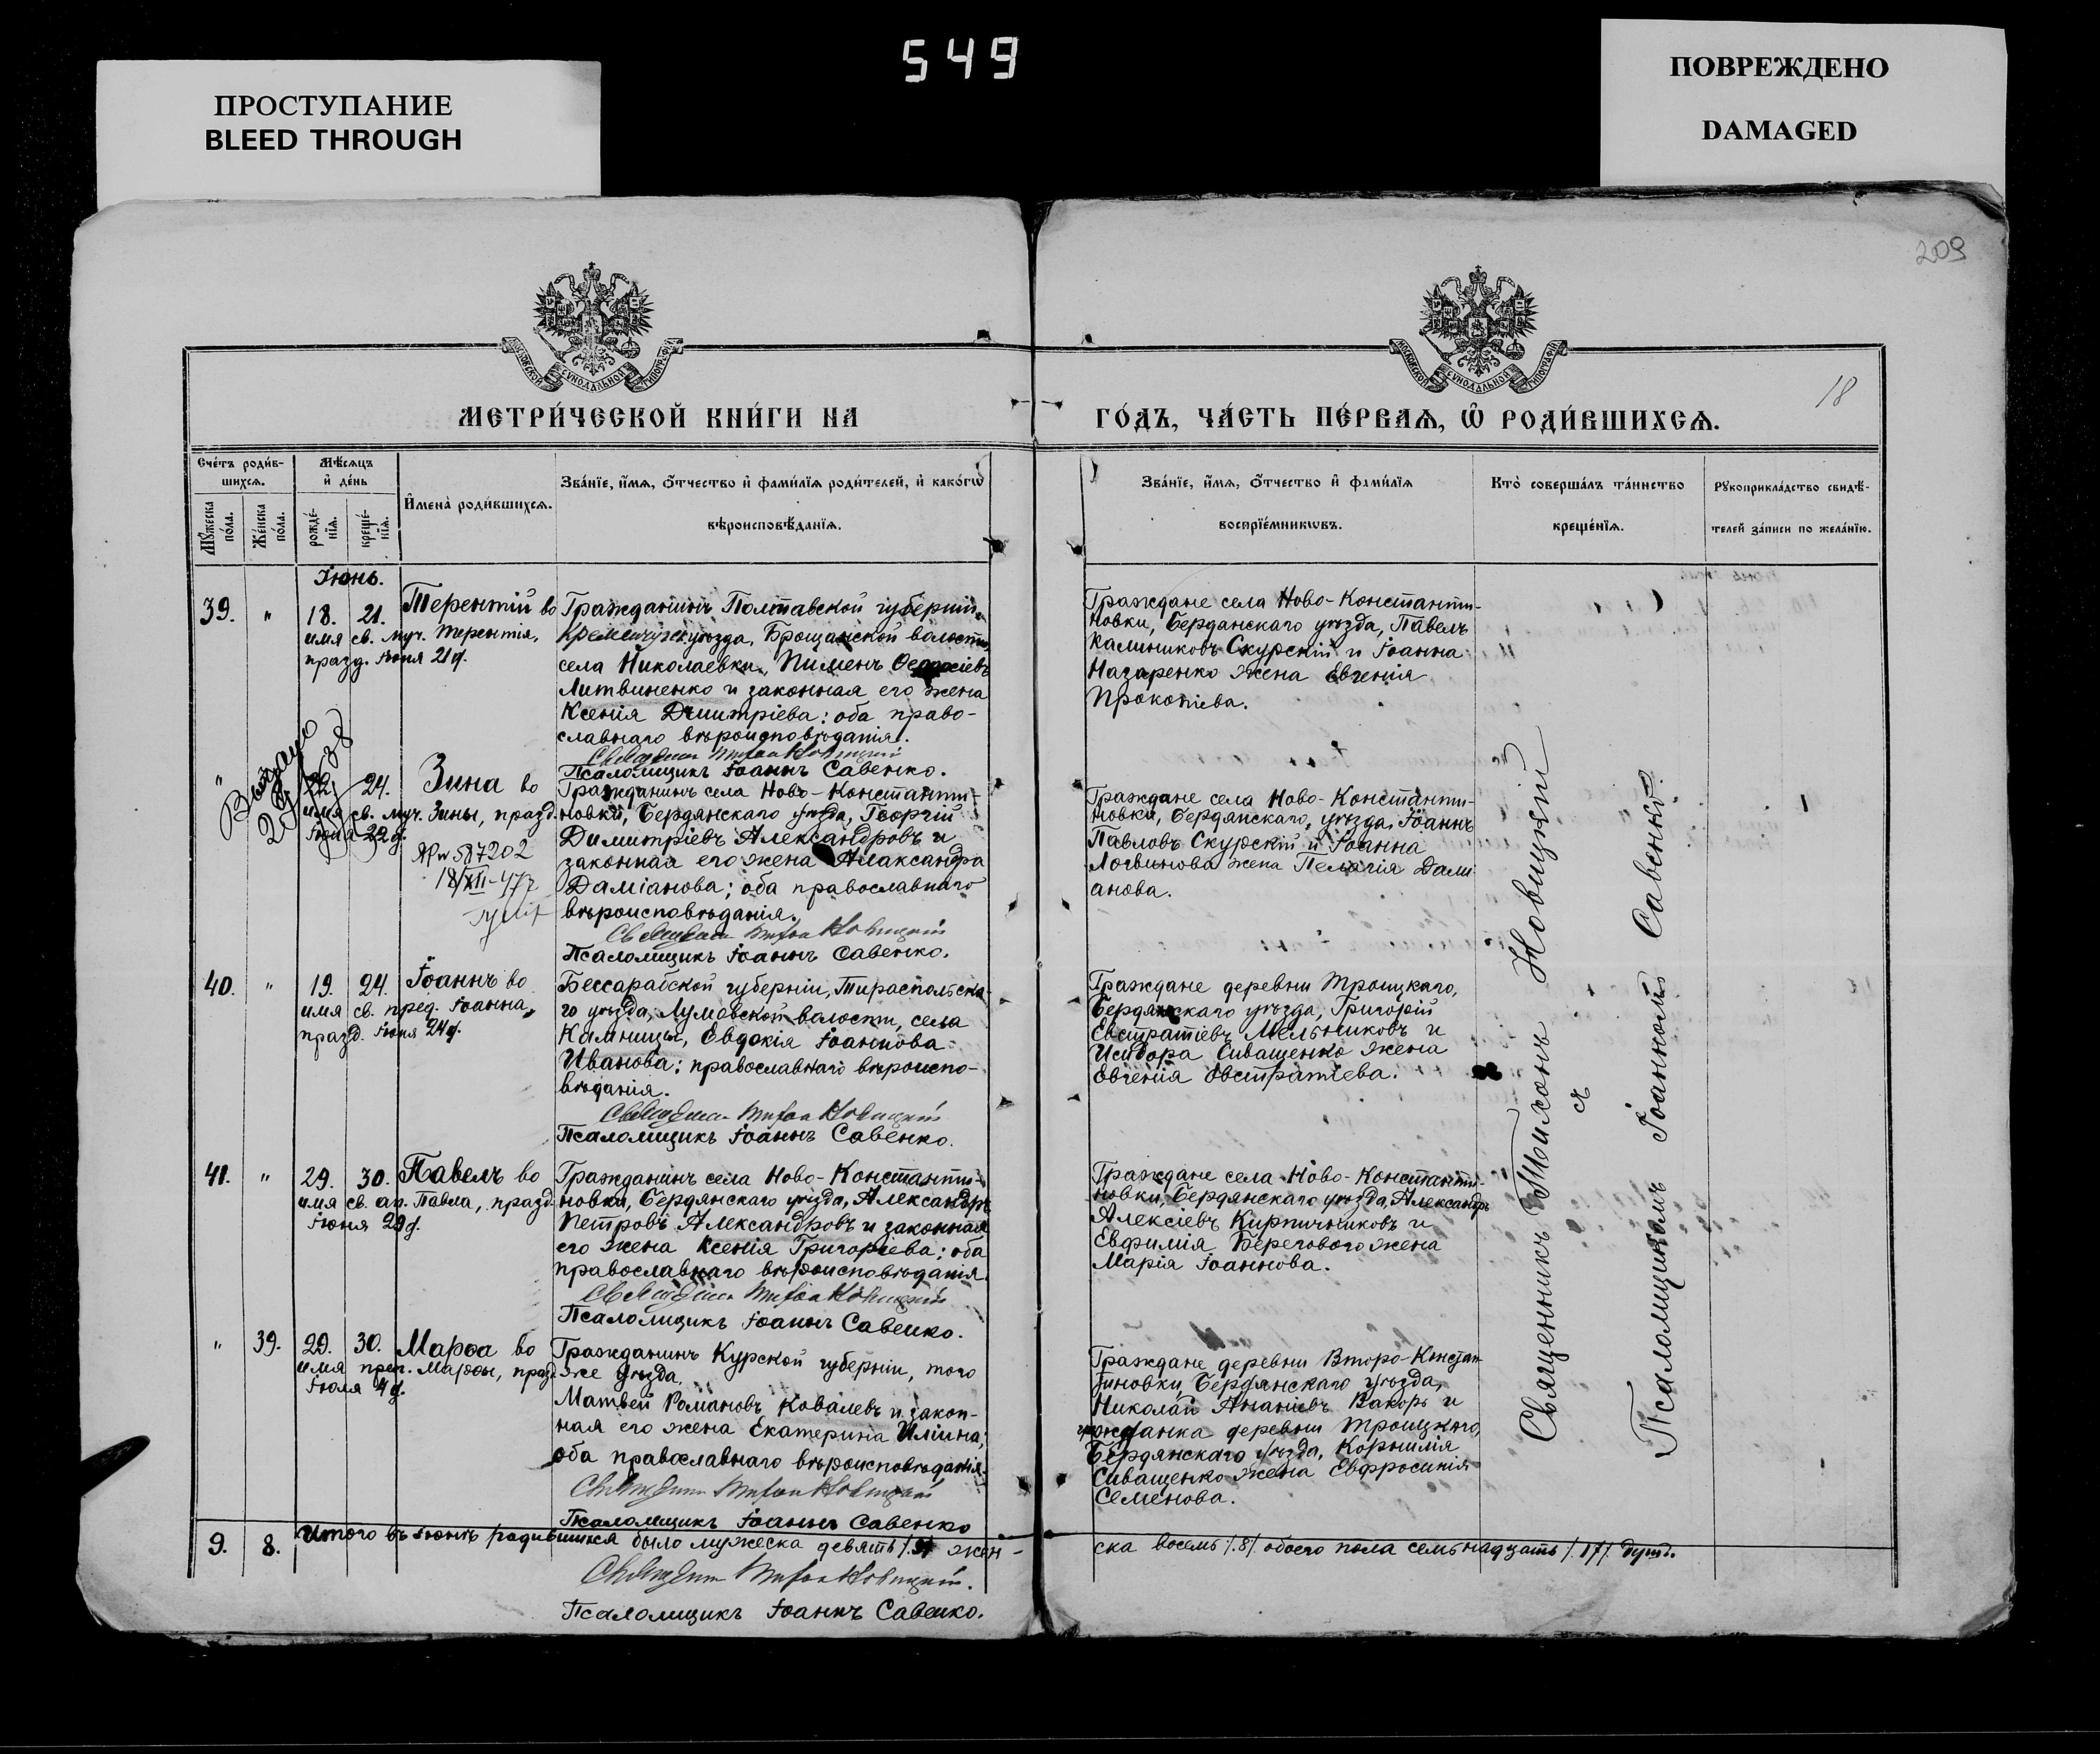 549
ПРОСТУПАНИЕ
BLEED THROUGH
ПОВРЕЖДЕНО
DAMAGED
209
18
МЕТРИ́ЧЕСКОЙ КНИ́ГИ НА
ГО́ДЪ, ЧА́СТЬ ПЕ́РВАѦ, Ѡ҆ РОДИ́ВШИХСѦ.
Сче́тъ роди́в-
шихсѧ.
Мꙋ́жеска по́ла.
Же́нска по́ла.
Мѣ́сѧцъ
и҆ де́нь
рожде́-
нїѧ.
креще́-
нїѧ.
И҆мена̀ роди́вшихсѧ.
Зва́нїе, и҆́мѧ, ѻ҆́тчество и҆ фами́лїѧ роди́телей, и҆ како́гѡ
вѣроисповѣ́данїѧ.
Зва́нїе, и҆́мѧ, ѻ҆́тчество и҆ фами́лїѧ
воспрїе́мникѡвъ.
Кто̀ соверша́лъ та́инство
креще́нїѧ.
Рꙋкоприкла́дство свидѣ́-
телей за́писи по жела́нїю.
Іюнь.
39. " 18. 21. Терентій во
имя св. муч. Терентія,
празд. Іюня 21 д.
Гражданинъ Полтавской губерніи,
Кременчугск. уѣзда, Брощанской волости,
села Николаевки, Пименъ
Литвиненко и законная его жена
Ксенія Димитріева; оба право-
славнаго вѣроисповѣданія.
Священник Тихон Новицкій
Псаломщикъ Іоаннъ Савенко.
Граждане села Ново-Константи-
новки, Бердянскаго уѣзда, Павелъ
Калиниковъ Скурскій и Іоанна
Назаренко жена Евгенія
Прокопіева.
" Выдано 22. 24. Зина во
имя св. муч. Зины, празд.
Іюня 22 д.
№ 587202
18/XII-47г
Гражданинъ села Ново-Константи-
новки, Бердянскаго уѣзда, Георгій
Димитріевъ Александровъ и
законная его жена Александра
Даміанова; оба православнаго
вѣроисповѣданія.
Священник Тихон Новицкій
Псаломщикъ Іоаннъ Савенко.
Граждане села Ново-Константи-
новки, Бердянскаго, уѣзда, Іоаннъ
Павловъ Скурскій и Іоанна
Логвинова жена Пелагія Дами-
анова.
40. " 19. 24. Іоаннъ во
имя св. пред. Іоанна,
празд. Іюня 24 д.
Бессарабской губерніи, Тираспольска-
го уѣзда, волости, села
Евдокія Іоаннова
Иванова; православнаго вѣроиспо-
вѣданія.
Священник Тихон Новицкій
Псаломщикъ Іоаннъ Савенко.
Граждане деревни Троицкаго,
Бердянскаго уѣзда, Григорій
Евстратіевъ Мельниковъ и
Исидора Сиващенко жена
Евгенія Евстратіева.
41. " 29. 30. Павелъ во
имя св. ап. Павла, празд.
Іюня 29 д.
Гражданинъ села Ново-Константи-
новки, Бердянскаго уѣзда, Александръ
Петровъ Александровъ и законная
его жена Ксенія Григоріева; оба
православнаго вѣроисповѣданія.
Священник Тихон Новицкій
Псаломщикъ Іоаннъ Савенко.
Граждане села Ново-Константи-
новки, Бердянскаго уѣзда, Александръ
Алексіевъ Кирпичниковъ и
Евфимія Берегового жена
Марія Іоаннова.
" 39. 29. 30. Марѳа во
имя преп. Марѳы, празд.
Іюля 4 д.
Гражданинъ Курской губерніи, того
же уѣзда,
Матвей Романовъ Ковалевъ и закон-
ная его жена Екатерина Иліина;
оба православнаго вѣроисповѣданія.
Священник Тихон Новицкій
Псаломщикъ Іоаннъ Савенко
Граждане деревни Второ-Констан-
тиновки, Бердянскаго уѣзда,
Николай Ананіевъ Вакоръ и
гражданка деревни Троицкаго,
Бердянскаго уѣзда, Корнилія
Сиващенко жена Евфросинія
Семенова.
Священникъ Тихонъ Новицкій
съ
Псаломщикомъ Іоанномъ Савенко.
9. 8. Итого въ Іюнѣ родившихся было мужеска девять /.9/. жен-
ска восемь /.8/. обоего пола семьнадцать /.17/. душъ.
Священник Тихон Новицкій.
Псаломщикъ Іоаннъ Савенко.